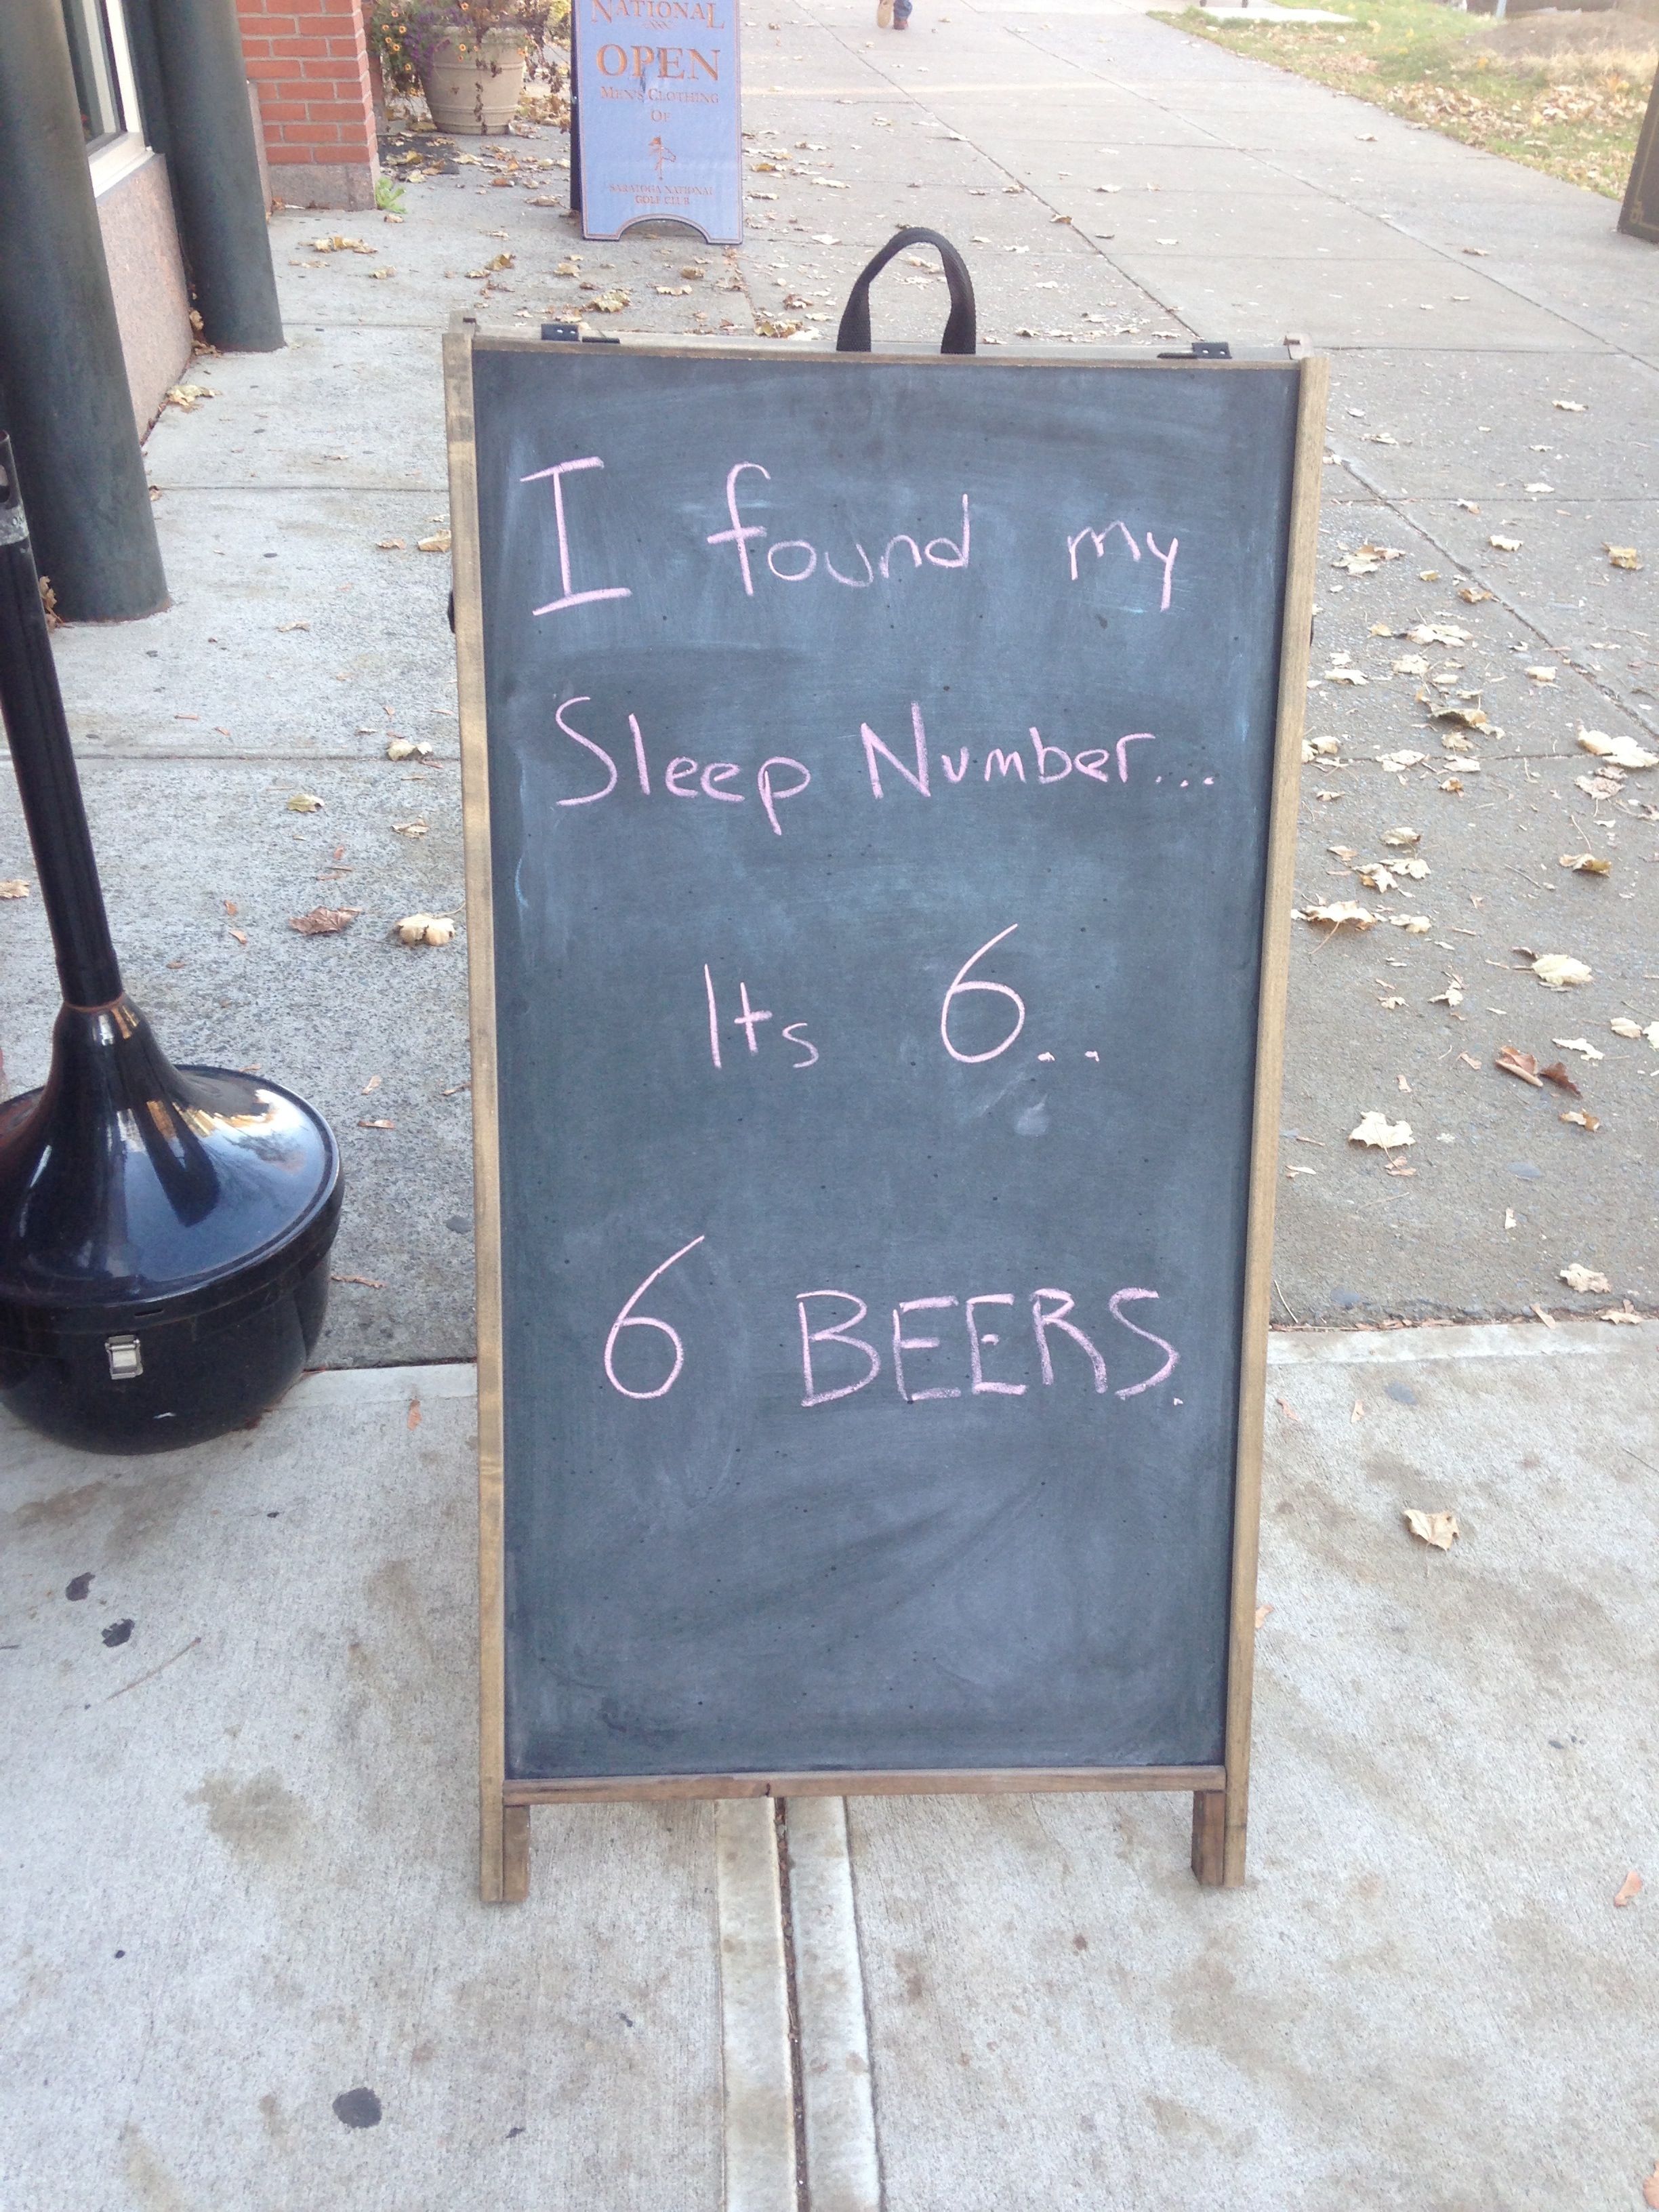 NATIONAL
OPEN
MEN'S CLOTHING
OF
SARATOGA NATIONAL
GOLF CLUB
I found my
Sleep Number...
Its 6..
6 BEERS.